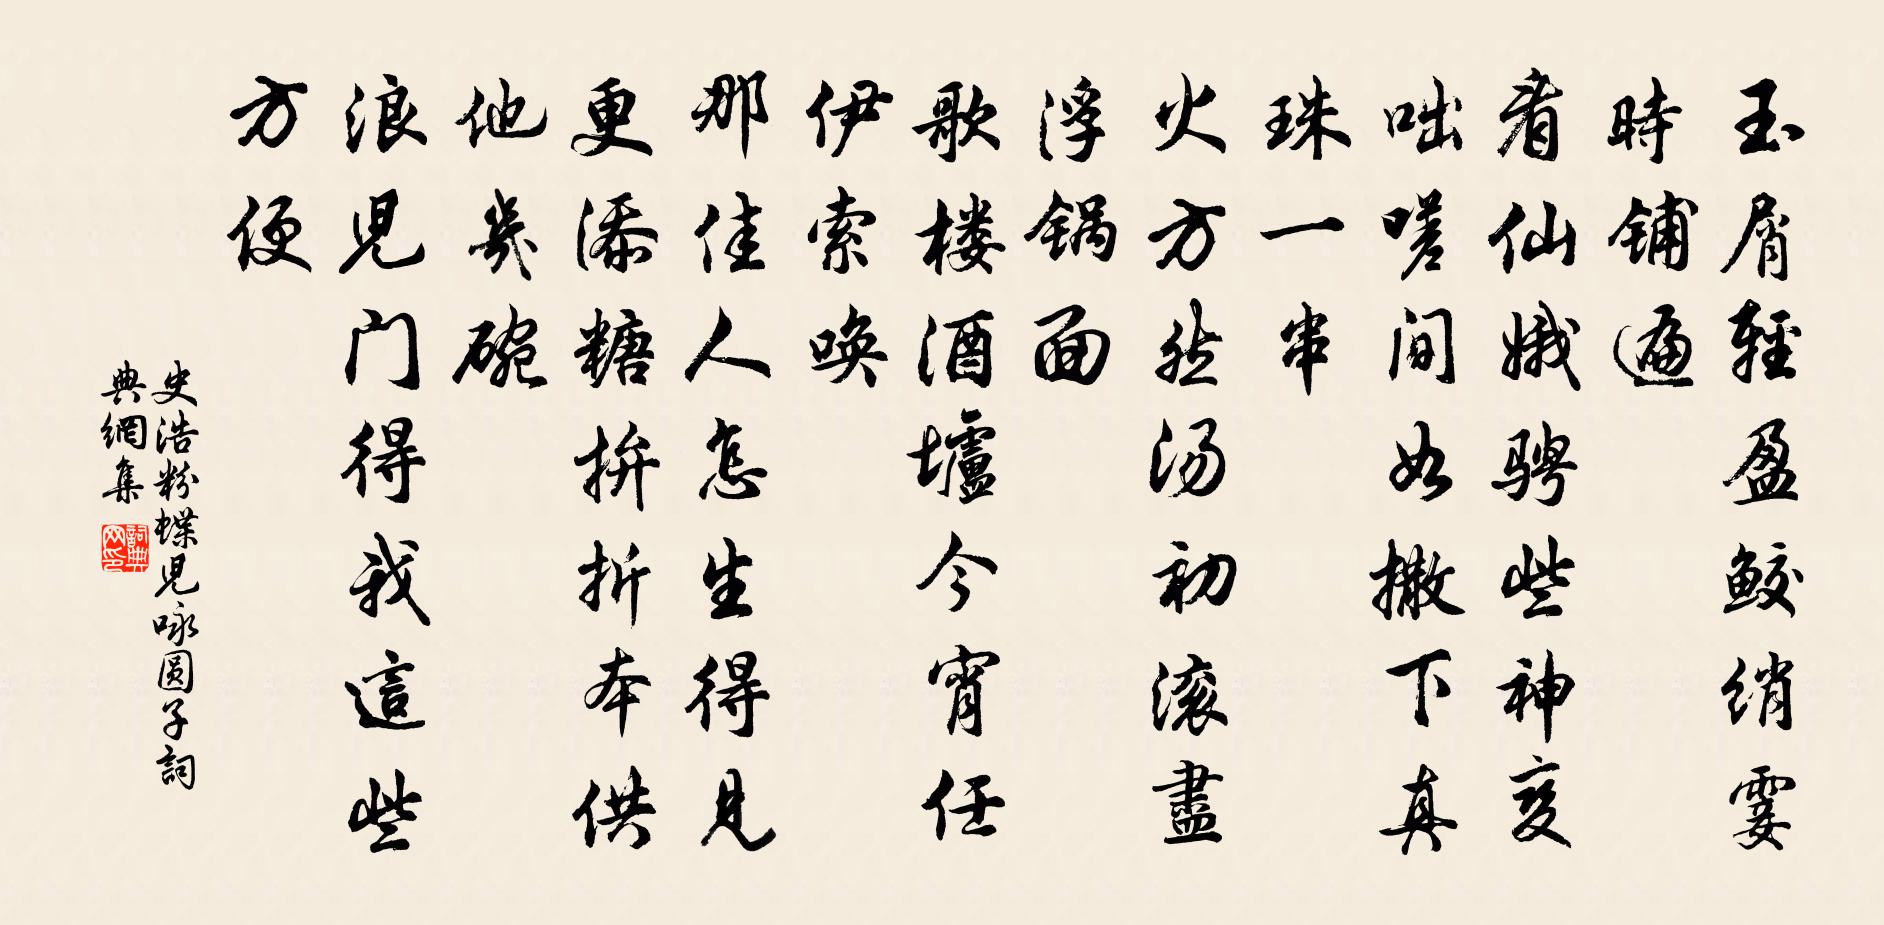 玉屑輕盈鮫綃霎
時铺遍
看仙娥骋些神变
咄嗟间如撒下真
珠一串
火方然汤初滚盡
浮锅面
歌楼酒壚今宵任
伊索唤
那佳人怎生得见
更添糖拚折本供
他幾碗
浪児门得我這些
方便
史浩粉蝶児咏圆子詞
典網集
詞典网印